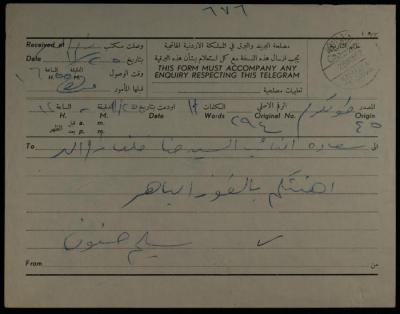 ٦٧٦
مصلحة البريد والبرق في المملكة الاردنية الهاشمية
يجب ارسال هذه النسخة مع كل استعلام بشأن هذه البرقية
THIS FORM MUST ACCOMPANY ANY
ENQUIRY RESPECTING THIS TELEGRAM
تعليمات مصلحية
Received at وصلت مكتب
Date بتاريخ
الساعة H. الدقيقة M. وقت الوصول
قبلها المأمور
ختم التاريخ
المصدر طولكرم Origin ٤٥
الرقم الاصلي Original No. ٢٩٤
الكلمات Words
اودعت بتاريخ Date
الدقيقة M. الساعة H. ١٢
a. m. قبل
p. m. بعد
الظهر
To الى سعادة النائب السيد حنا خلف رام الله
اهنئكم بالفوز الباهر
سليم حنون
From من